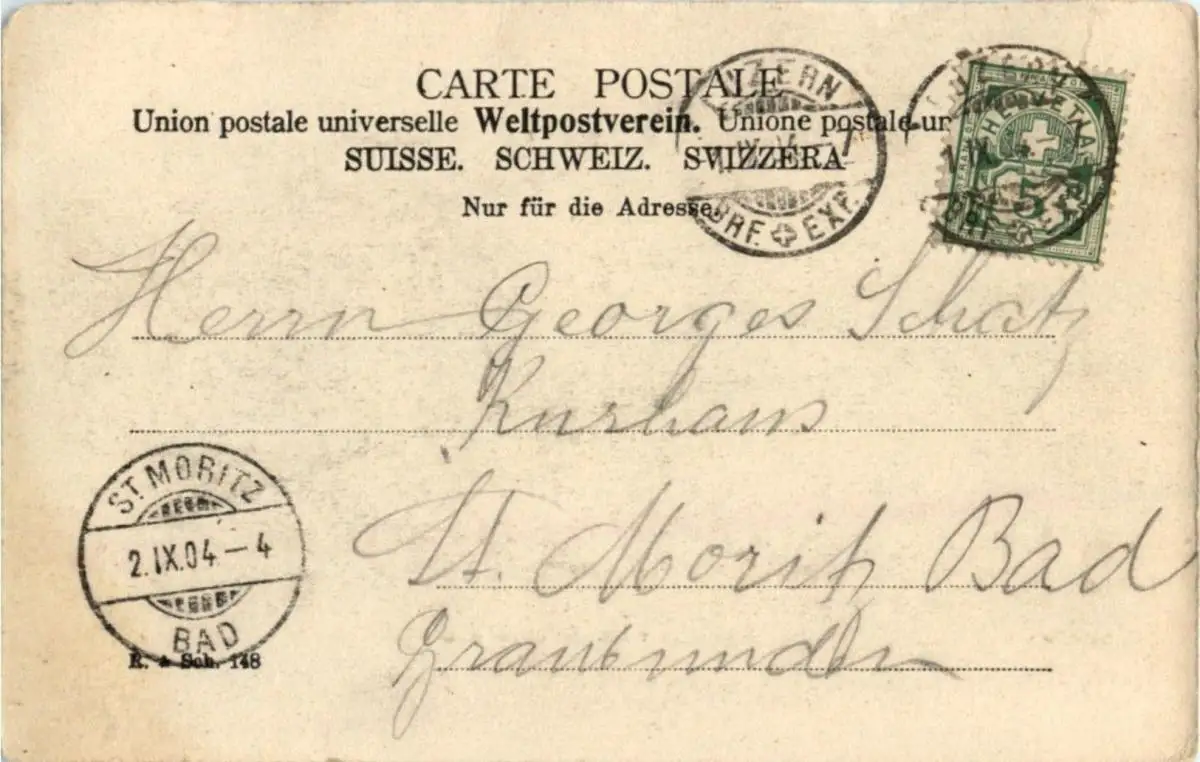 CARTE POSTALE
Union postale universelle Weltpostverein. Unione postale
SUISSE. SCHWEIZ. SVIZZERA
Nur für die Adresse.
LUZERN
BRF. EXP.
HELVETIA
5
Herrn Georges Schatz
Kurhaus
St. Moritz Bad
Graubünden
ST. MORITZ
2.IX.04–4
BAD
R. & Sch. 148